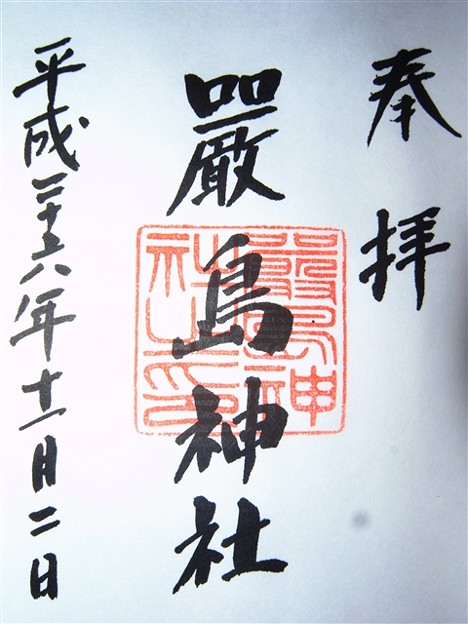 奉拝
嚴島神社
平成二十六年十一月二日
嚴島神
社之印